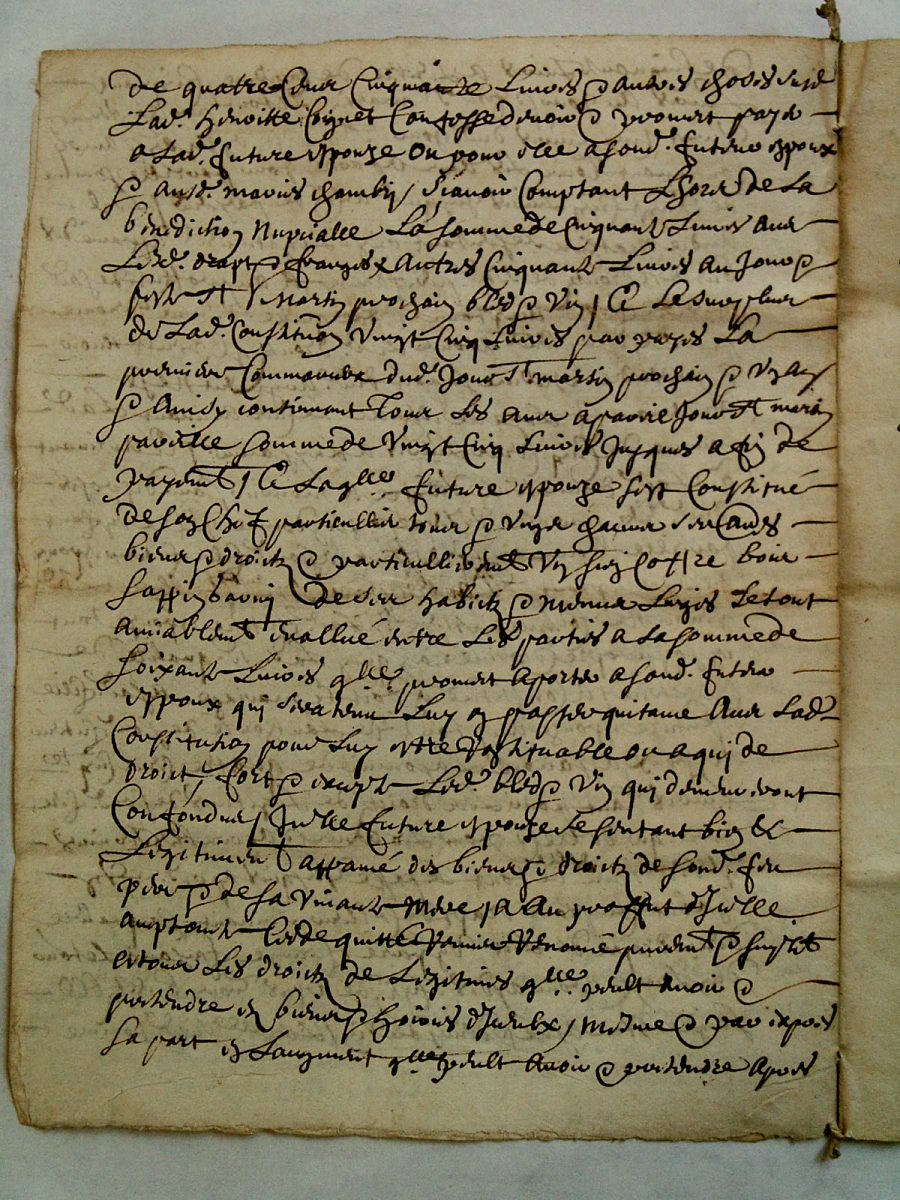 de quatre Cens Cinquante Livres & autres choses
Lad.e Benoitte Coignet Confesse devoir & promet payer
a Lad.e future espouze ou pour elle a sond. futeur espoux
& ausd. maries Chamb / sçavoir Comptant Lhore de La
benediction Nuptialle La somme de Cinquante Livres avec
Lesd. draps & Autres Cinquante Livres au Jour &
feste St Martin prochain bled & vin / Et Le surplus
de Lad.e Constitution Vingt Cinq Livres par payes La
premiere Commensera dud. Jour St martin prochain & Un an
& Ainsy continuant Tous Les ans a pareil Jour St martin
pareille somme de Vingt Cinq Livres Jusques a fin de
payemt / Et Laqlle future espouze sest Constitué
de son Chef particullier tous & Ungs chacuns ses
biens & droictz & particullieremt Un sien Coffre bois
Sappin de ses habitz & menus Linges Le tout
amiablemt evallué entre Les parties a La somme de
Soixante Livres qlle promet aporter a sond. futeur
espoux qui sera tenu Luy en passer quitance avec Lad.e
Constitution pour Luy estre restituable ou a qui de
droict / fors & excepte Lesd. bled & Vin qui demeureront
Confondus / Icelle future espouze se sentant bien &
Legitimemt appanné des biens & droictz de sond. feu
pere & de sa vivante Mere / a Au proffit d'Icelle
quitte & Renoncé puremt & simplemt
a tous Les droictz de Legitimes qlle peult avoir &
pretendre es biens & hoiries d'Iceulx / mesme & par expres
Sa part en Laugment qlle peult Avoir & pretendre Apres